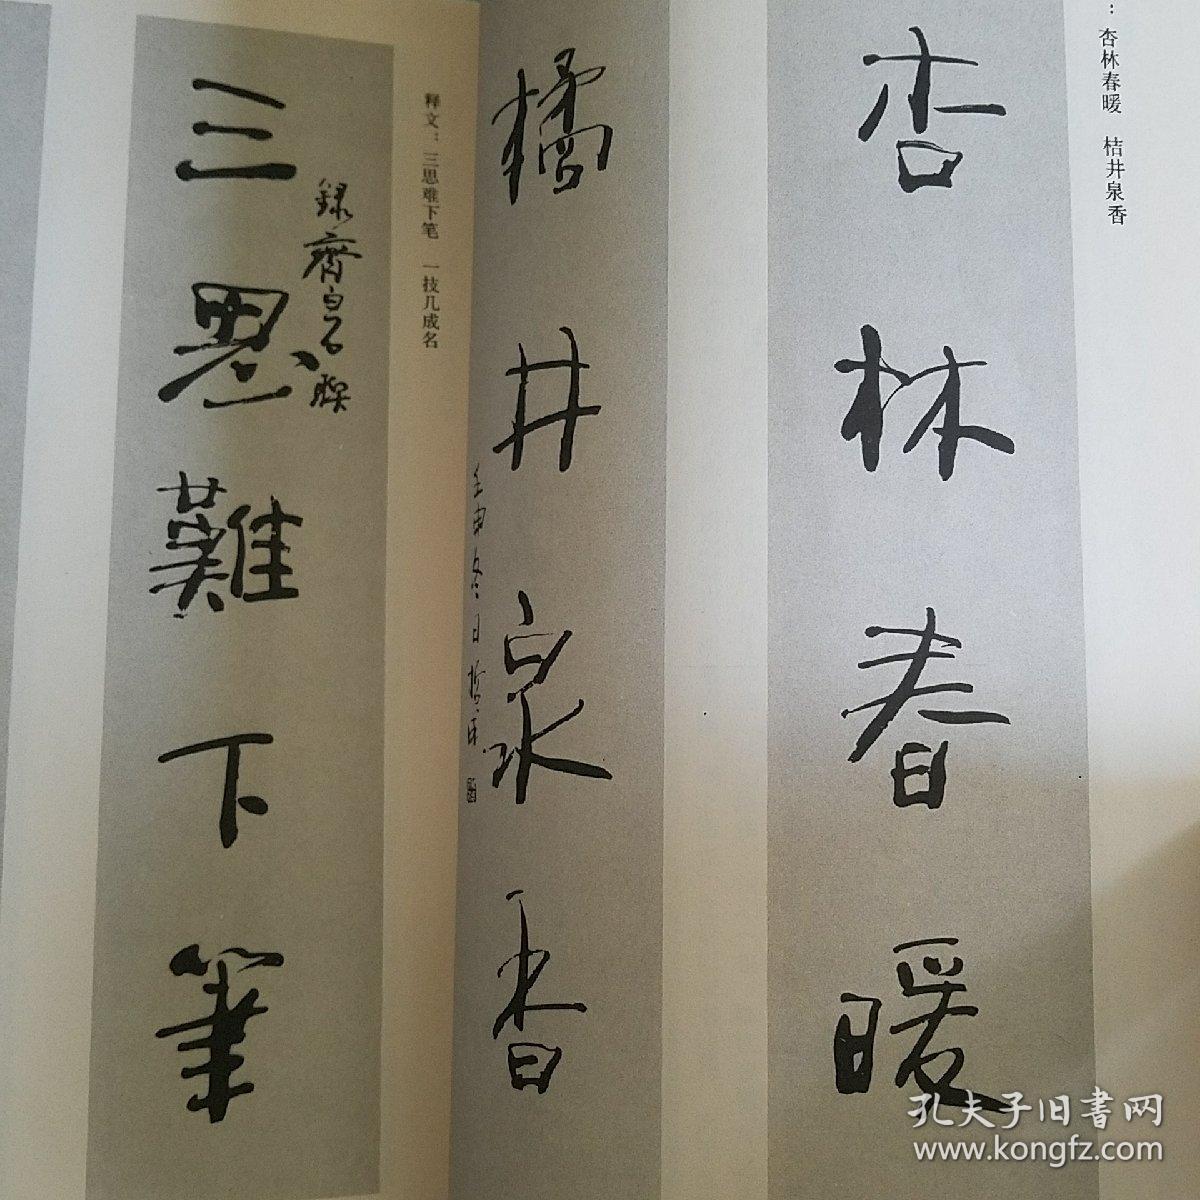 ：杏林春暖　桔井泉香
杏林春暖
橘井泉香
壬申冬日
释文：三思难下笔　一技几成名
録齊白石聯
三思難下筆
孔夫子旧书网
www.kongfz.com